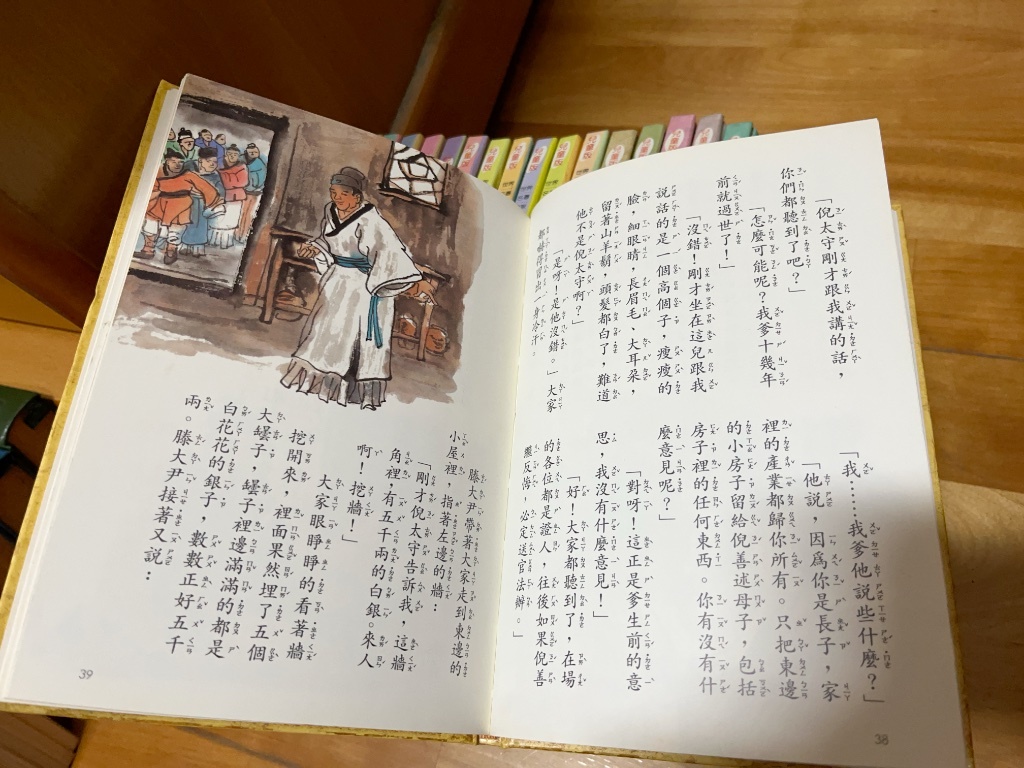 「倪太守剛才跟我講的話，
你們都聽到了吧？」
「怎麼可能呢？我爹十幾年
前就過世了！」
「沒錯！剛才坐在這兒跟我
說話的是一個高個子，瘦瘦的
臉，細眼睛，長眉毛、大耳朵，
留著山羊鬍，頭髮都白了，難道
他不是倪太守啊？」
「是呀！是他沒錯。」大家
都嚇得冒出一身冷汗。
「我……我爹他說些什麼？」
「他說，因為你是長子，家
裡的產業都歸你所有。只把東邊
的小房子留給倪善述母子，包括
房子裡的任何東西。你有沒有什
麼意見呢？」
「對呀！這正是爹生前的意
思，我沒有什麼意見！」
「好！大家都聽到了，在場
的各位都是證人，往後如果倪善
繼反悔，必定送官法辦。」
38
滕大尹帶著大家走到東邊的
小屋裡，指著左邊的牆：
「剛才倪太守告訴我，這牆
角裡有五千兩的白銀。來人
啊！挖牆！」
大家眼睜睜的看著牆
挖開來，裡面果然埋了五個
大罎子，罎子裡邊滿滿的都是
白花花的銀子，數數正好五千
兩。滕大尹接著又說：
39